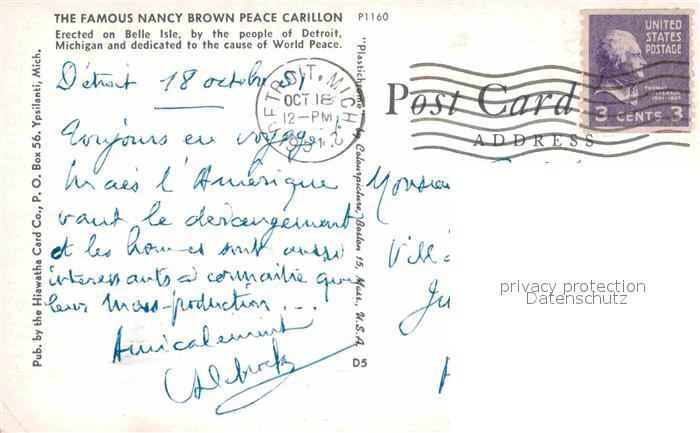 THE FAMOUS NANCY BROWN PEACE CARILLON
Erected on Belle Isle, by the people of Detroit,
Michigan and dedicated to the cause of World Peace.
P1160
Pub. by the Hiawatha Card Co., P. O. Box 56, Ypsilanti, Mich.
Détroit 18 octobre 51
Toujours en voyage
Mais l'Amérique
vaut le dérangement
et les hommes sont aussi
interessants à connaitre que
leur Mass-production ...
Amicalement
"Plastichrome" by Colourpicture, Boston 15, Mass., U.S.A
D5
DETROIT, MICH.
OCT 18
12-PM
1951
Post Card
ADDRESS
UNITED
STATES
POSTAGE
THOMAS
JEFFERSON
3 CENTS 3
Monsieu
Vill
Ju
privacy protection
Datenschutz